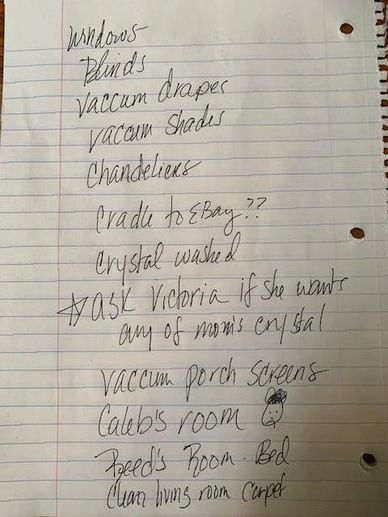 Windows
Blinds
Vaccum drapes
vacoum Shades
Chandeliers
Cradle to EBay??
Crystal washed
☆ ask Victoria if she wants
any of mom's crystal
vaccum porch screens
Caleb's room
Reed's Room - Bed
Clean living room Carpet